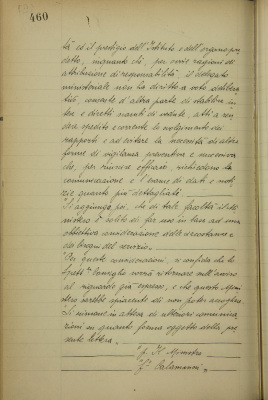 460
tà ed il prestigio dell'Istituto e dell'organo pre
detto, inquanto ché, per ovvie ragioni di
attribuzione di responsabilità, il delegato
ministeriale non ha diritto a voto delibera
tivo, consente d'altra parte di stabilire in
tese e diretti scambi di vedute, atti a ren
dere spedito e corrente lo svolgimento dei
rapporti e ad evitare la necessità di altre
forme di vigilanza, preventiva e successiva
che, per riuscire efficaci, richiedono la
comunicazione e l'esame di dati e noti
zie quanto più dettagliati.
"Si aggiunga, poi, che di tale facoltà il Mi
nistero è solito di far uso in base ad una
obbiettiva considerazione delle circostanze e
dei bisogni del servizio.
"Per queste considerazioni, si confida che lo
Spett. Consiglio vorrà ritornare sull'avviso
al riguardo già espresso, e che questo Mini
stero sarebbe spiacente di non poter accogliere.
Si rimane in attesa di ulteriori comunica
zioni in quanto forma oggetto della pre
sente lettera.
"f. Il Ministro
"f. Calamani